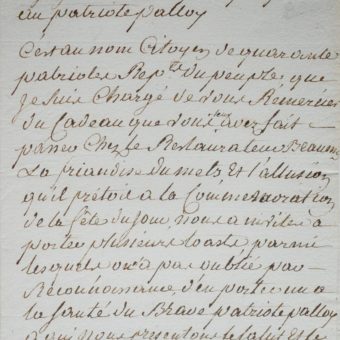 au patriote palloy
C'est au nom Citoyen de quarante
patriotes Rep.ts du peuple, que
je suis Chargé de vous Rémercier
du Cadeau que vous leur avez fait
Chez le Restaurateur
La friandise du mets Et l'allusion
qu'il prétoit a la Commemoration
de la fête du jour, nous a invités a
porter plusieurs toasts parmi
lesquels on n'a pas oublié par
Reconnoissance, d'en porter un a
la santé du Brave patriote palloy
a qui nous presentons le salut Et le